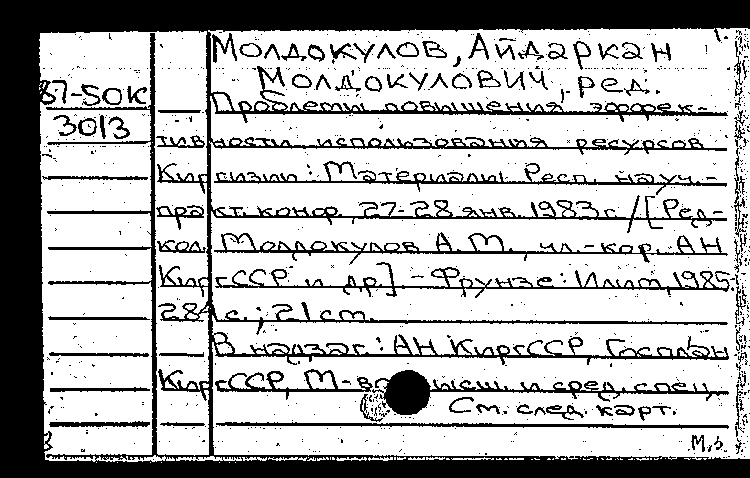 1.
Молдокулов, Айдаркан
Молдокулович, ред.
87-50К
3013
Проблемы повышения эффек-
тивности использования ресурсов
Киргизии: Материалы Респ. науч.-
практ. конф., 27-28 янв. 1983г. / [Ред-
кол. Молдокулов А.М., чл.-кор. АН
КиргССР и др.] - Фрунзе: Илим, 1985.
284 с.; 21 cm.
В надзаг.: АН КиргССР, Госплан
КиргССР, М-во высш. и сред. спец.
См. след. карт.
М.З.